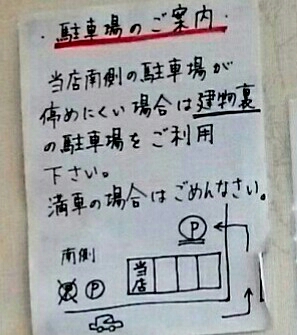 ・駐車場のご案内・
当店南側の駐車場が
停めにくい場合は建物裏
の駐車場をご利用
下さい。
満車の場合はごめんなさい。
P
南側
P
当店